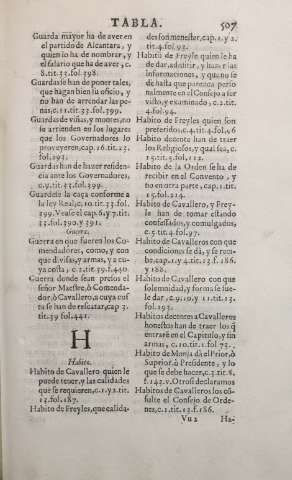 TABLA.
507
Guarda mayor ha de aver en
el partido de Alcantara, y
quien lo ha de nombrar, y
el salario que ha de aver, c.
8.tit.33.fol.398.
Guardas se han de poner tales,
que hagan bien su oficio, y
no han de arrendar las pe-
nas, c.11.tit.33.fol.399.
Guardas de viñas, y montes, no
se arrienden en los lugares
que los Governadores lo
proveyeren, cap.16.tit.23.
fol.291.
Guardas han de haver residen
cia ante los Governadores,
c.9.tit.33.fol.399.
Guardese la caça conforme a
la ley Real, c.10.tit.33.fol.
399. Vease el cap.6.y 7.tit.
33.fol.390.y 391.
Guerra.
Guerra en que fueren los Co-
mendadores, como, y con
que divisas, y armas, y a cu-
ya costa, c.2.tit.39.f.440.
Guerra donde sean presos el
señor Maestre, ò Comenda-
dor, ò Cavallero, a cuya cos
ta se han de rescatar, cap 3.
tit.39 fol.441.
H
Habito.
Habito de Cavallero quien le
puede tener, y las calidades
que se requieren, c.1.y 2.tit.
13.fol.187.
Habito de Freyles, que calida-
des son menester, cap.1.y 2.
tit.4.fol.93.
Habito de Freyle quien le ha
de dar, admitir, y hazer las
informaciones, y que no se
dè hasta que parezca perso
nalmente en el Consejo a ser
visto, y examinado, c.2.tit.
4.fol.94.
Habito de Freyles quien son
preferidos, c.4.tit.4.fol.96
Habito decente han de traer
los Religiosos, y qual sea, c.
13.tit.5.fol.112.
Habito de la Orden se ha de
recibir en el Convento, y
no en otra parte, cap.1.tit.
15.fol.214.
Habito de Cavallero, y Frey-
le han de tomar estando
confessados, y comulgados,
c.5 tit.4.fol.97.
Habito de Cavalleros con que
condiciones se dà, y se reci-
be, cap.1.y 4.tit.13.f.186.
y 188.
Habito de Cavallero con que
solemnidad, y forma se sue-
le dar, c.9.10.y 11.tit.13.
fol.193.
Habitos decentes a Cavalleros
honestos han de traer los q̃
entrarè en el Capitulo, y sin
armas, c.10.tit.1.fol 73.
Habito de Monja dà el Prior, ò
Superior, ò Presidente, y lo
que se debe hazer, c.3.tit.8,
f.142.v. Otrosi declaramos
Habitos de Cavalleros los cõ-
sulte el Consejo de Orde-
nes, c.1.tit.13.f.186.
Vu 2
Ha-